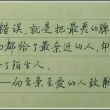 错误,就是把最差的脾
和都给了最亲近的人,却
给了陌生人。
——向每亲至爱的人致歉